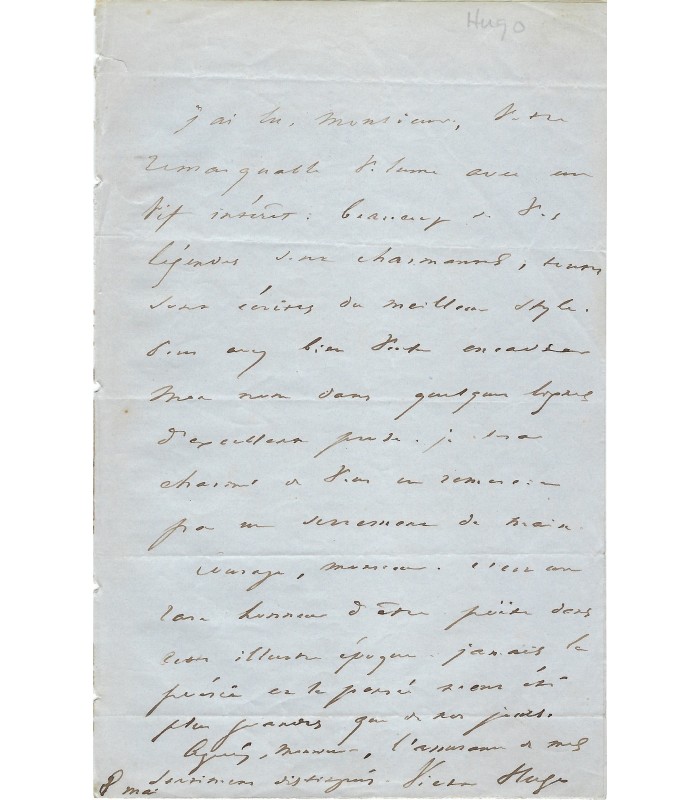 Hugo
j'ai lu, monsieur, votre
remarquable volume avec un
vif intérêt. beaucoup de vos
légendes sont charmantes, toutes
sont écrites du meilleur style.
Vous avez bien voulu encadrer
mon nom dans quelques lignes
d'excellente prose. je serai
charmé de vous en remercier
par un serrement de main.
Courage, monsieur. c'est un
rare honneur d'être poëte dans
cette illustre époque. jamais la
poésie et la pensée n'ont été
plus grandes que de nos jours.
Agréez, monsieur, l'assurance de mes
sentiments distingués. Victor Hugo
8 mai